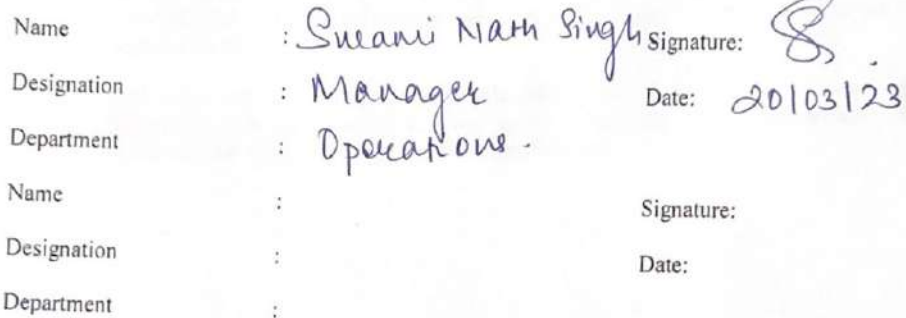 Name : Swami Nath Singh Signature:
Designation : Manager Date: 20/03/23
Department : Operations.
Name : Signature:
Designation : Date:
Department :